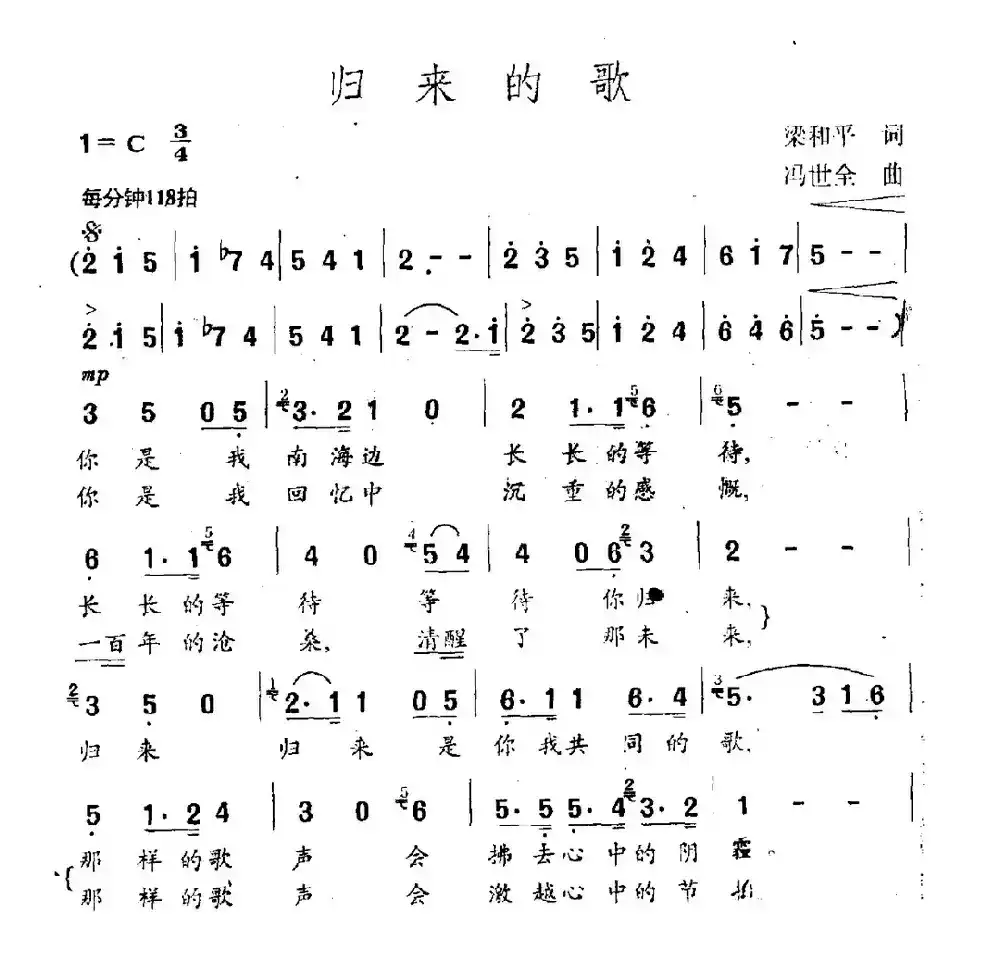 归来的歌
1=C 3/4
梁和平 词
冯世全 曲
每分钟118拍
(2 1 5 | 1 ♭7 4 | 5 4 1 | 2 - - | 2 3 5 | 1 2 4 | 6 1 7 | 5 - - |
2 1 5 | 1 ♭7 4 | 5 4 1 | 2 - 2·1 | 2 3 5 | 1 2 4 | 6 4 6 | 5 - - )
mp
3 5 0 5 | 3·2 1 0 | 2 1·1 6 | 5 - - |
你是我南海边 长长的等待,
你是我回忆中 沉重的感慨,
6 1·1 6 | 4 0 5 4 | 4 0 6 3 | 2 - - |
长长的等待 等待你归来,
一百年的沧桑, 清醒了那未来,
3 5 0 | 2·1 1 0 5 | 6·1 1 6·4 | 5· 3 1 6
归来 归来是你我共同的歌,
5 1·2 4 | 3 0 6 | 5·5 5·4 3·2 | 1 - - |
那样的歌声会拂去心中的阴霾。
那样的歌声会激越心中的节拍